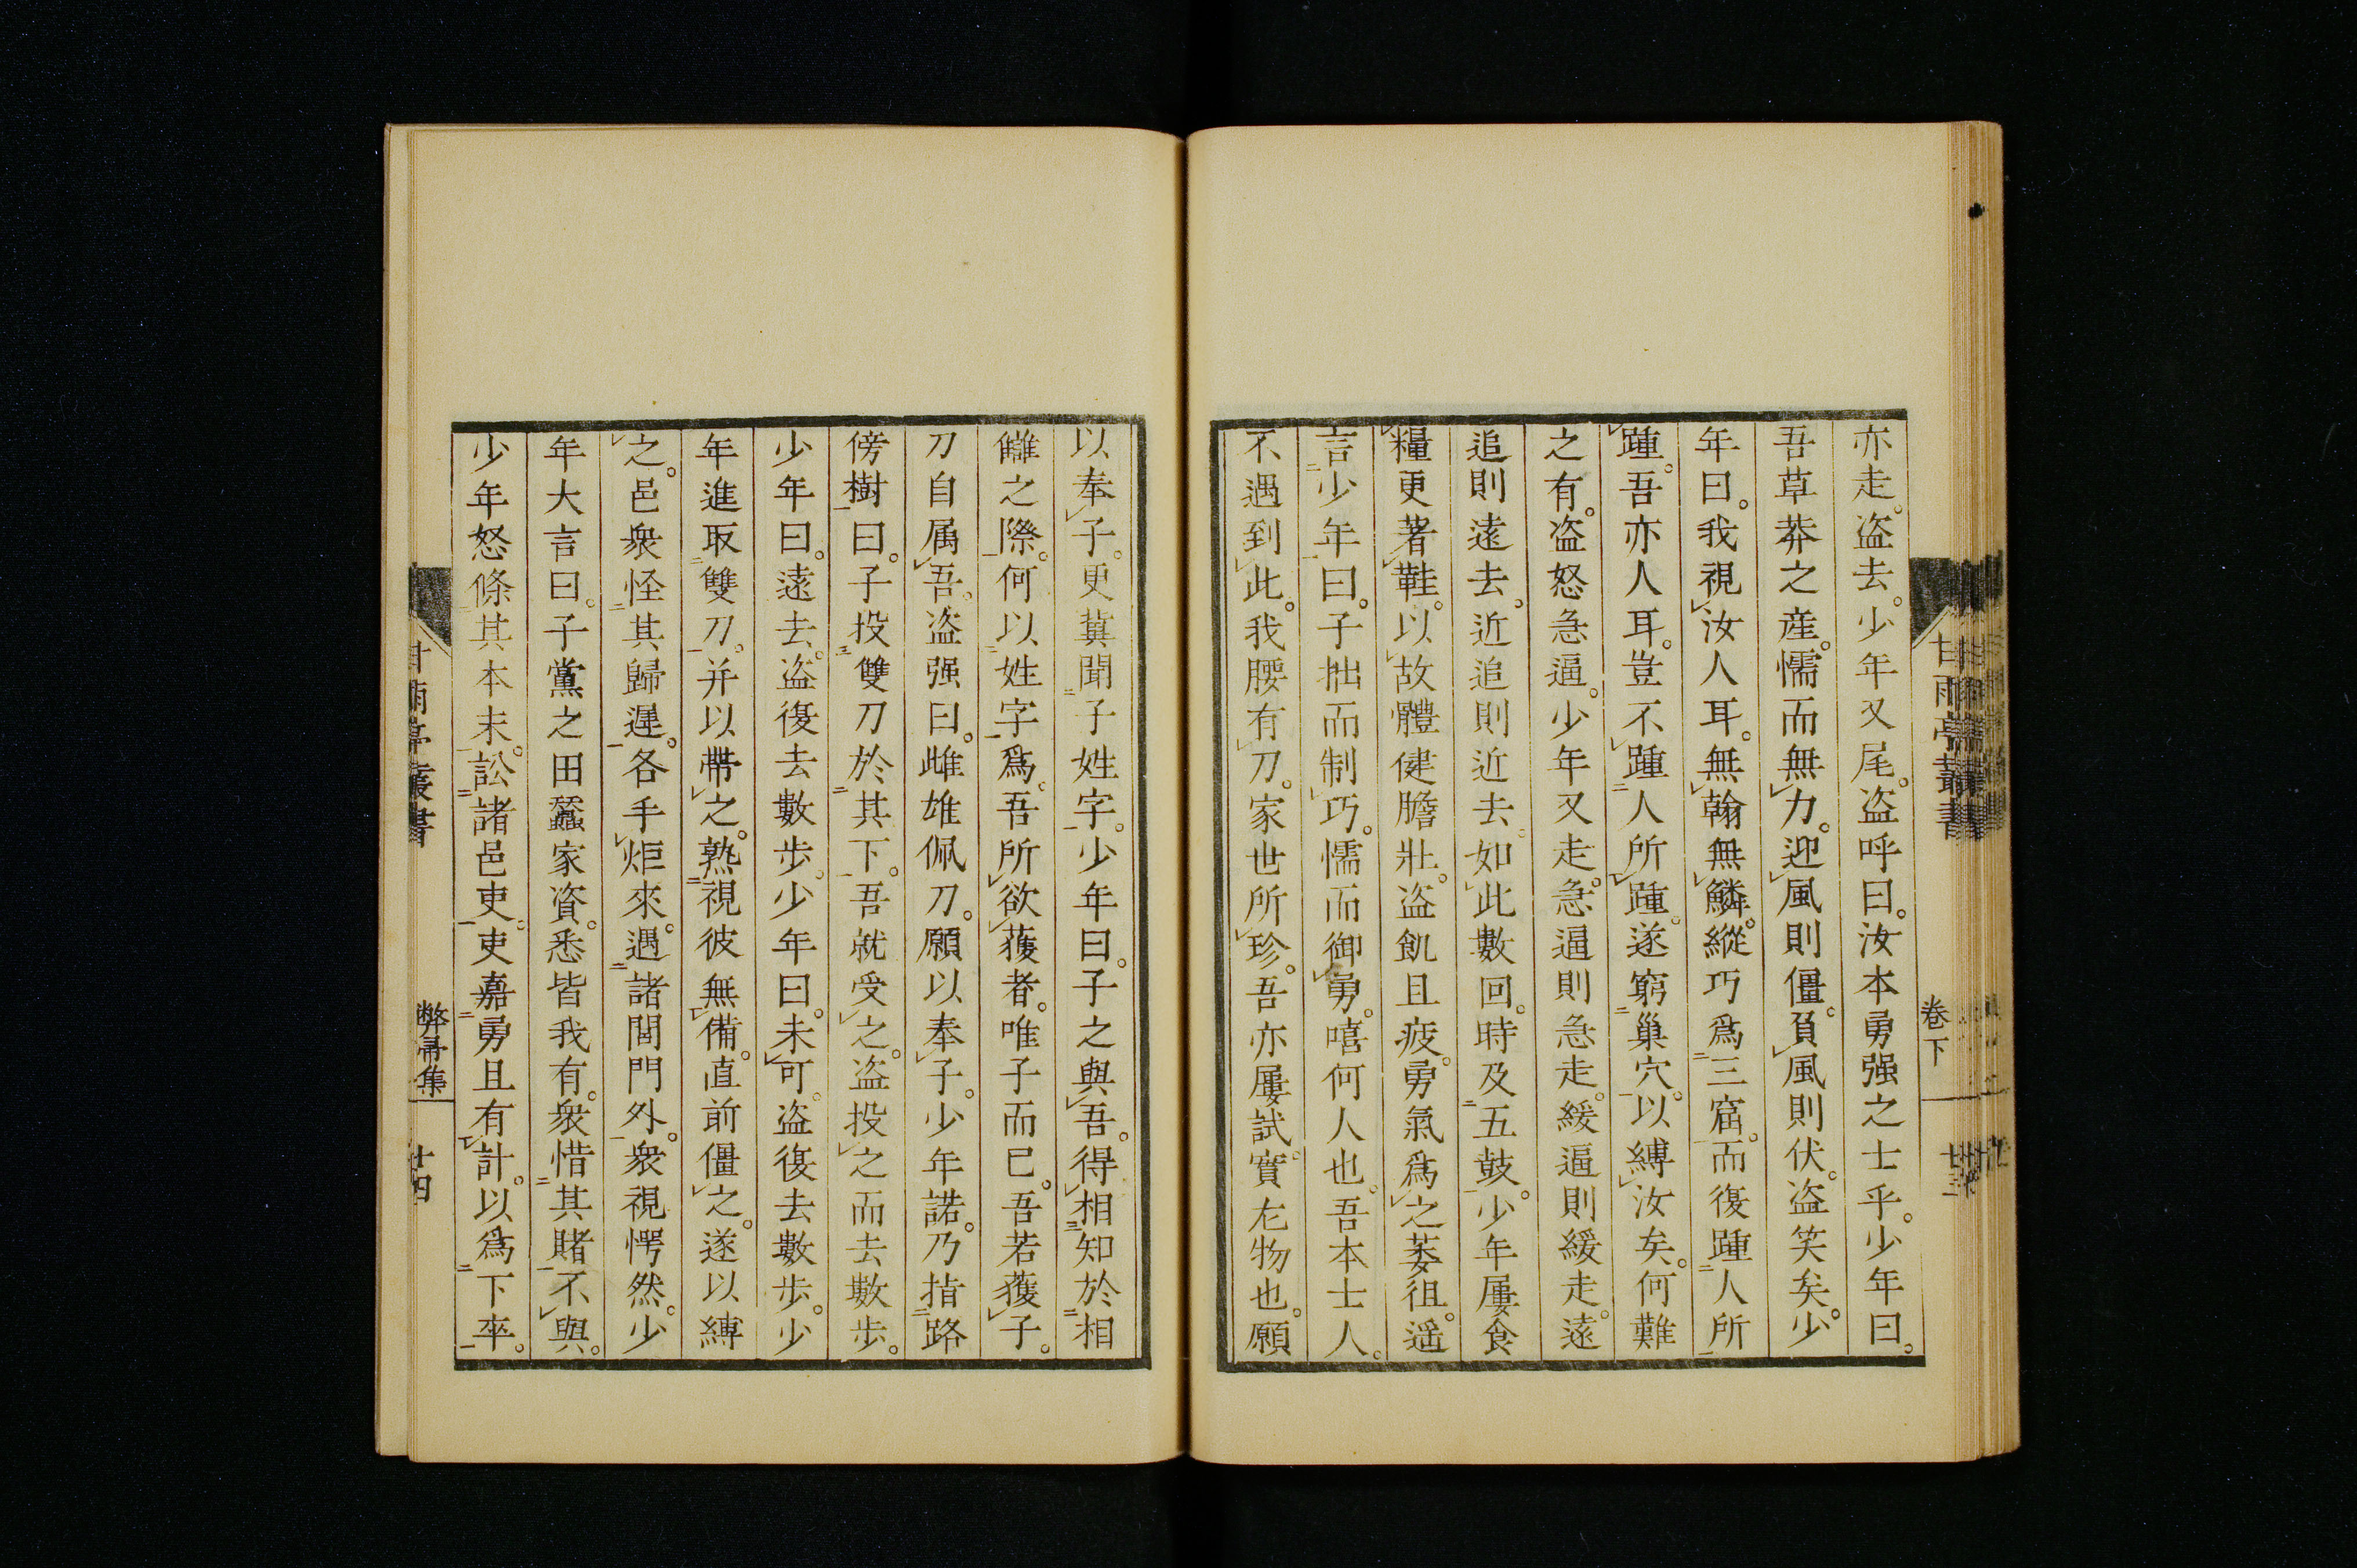 亦走。盗去。少年又尾。盗呼曰。汝本勇强之士乎。少年曰。
吾草莽之産。懦而無力。迎風則僵。負風則伏。盗笑矣。少
年曰。我視汝人耳。無翰無鱗。縱巧爲三窟。而復踵人所
踵。吾亦人耳。豈不踵人所踵。遂窮巢穴。以縛汝矣。何難
之有。盗怒急逼。少年又走。急逼則急走。緩逼則緩走。遠
追則遠去。近追則近去。如此數回。時及五鼓。少年屢食
糧更著鞋。以故體健膽壯。盗飢且疲。勇氣爲之萎徂。遥
言少年曰。子拙而制巧。懦而御勇。嘻何人也。吾本士人。
不遇到此。我腰有刀。家世所珍。吾亦屢試。實尤物也。願
甘雨亭叢書
卷下
以奉子。更冀聞子姓字。少年曰。子之與吾。得相知於相
讎之際。何以姓字爲。吾所欲獲者。唯子而已。吾若獲子。
刀自属吾。盗强曰。雌雄佩刀。願以奉子。少年諾。乃指路
傍樹曰。子投雙刀於其下。吾就受之。盗投之而去數歩。
少年曰。遠去。盗復去數歩。少年曰。未可。盗復去數歩。少
年進取雙刀。并以帶之。熟視彼無備。直前僵之。遂以縛
之。邑衆怪其歸遲。各手炬來。遇諸閭門外。衆視愕然。少
年大言曰。子黨之田蠶家資。悉皆我有。衆惜其賭不與。
少年怒條其本末。訟諸邑吏。吏嘉勇且有計。以爲下卒。
甘雨亭叢書
弊帚集
廿四